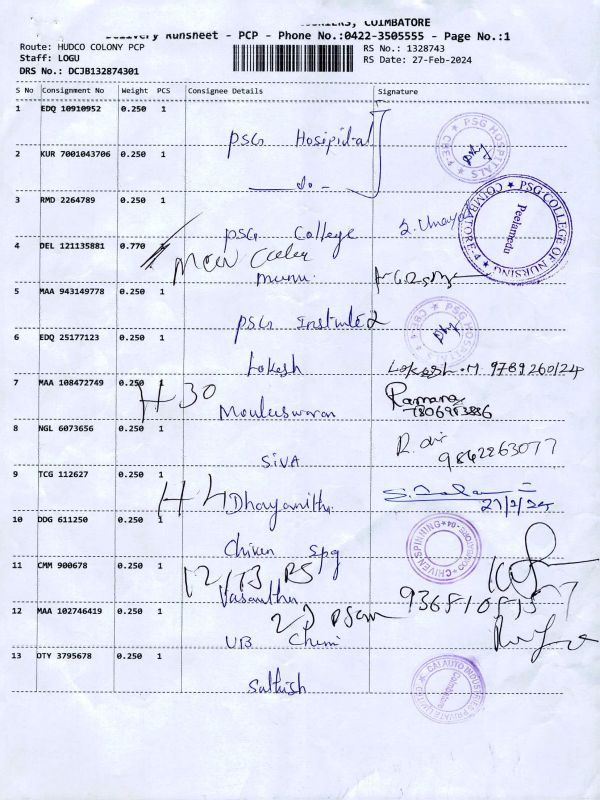 COIMBATORE
Delivery Runsheet - PCP - Phone No.:0422-3505555 - Page No.:1
Route: HUDCO COLONY PCP
RS No.: 1328743
Staff: LOGU
RS Date: 27-Feb-2024
DRS No.: DCJB132874301
S No Consignment No Weight PCS Consignee Details Signature
1 EDQ 10910952 0.250 1
PSG Hosipital
PSG HOSPITALS
2 KUR 7001043706 0.250 1
do -
3 RMD 2264789 0.250 1
PSG College
PSG COLLEGE OF NURSING COIMBATORE-4 Peelamedu
4 DEL 121135881 0.770
5 MAA 943149778 0.250 1
PSG
PSG HOSPITALS
6 EDQ 25177123 0.250 1
Lokesh
Lokesh.M
7 MAA 108472749 0.250 1
H 30
Mouleeswaran
Ramana
8 NGL 6073656 0.250 1
SIVA
9842263077
9 TCG 112627 0.250 1
Dhayanithi
27/2/24
10 DDG 611250 0.250 1
Chiven Spg
CHIVEN SPINNING
11 CMM 900678 0.250 1
Vasantha
12 MAA 102746419 0.250 1
UB Chemi
13 OTY 3795678 0.250 1
Sathish
CAI AUTO INDUSTRIES PRIVATE LIMITED Coimbatore